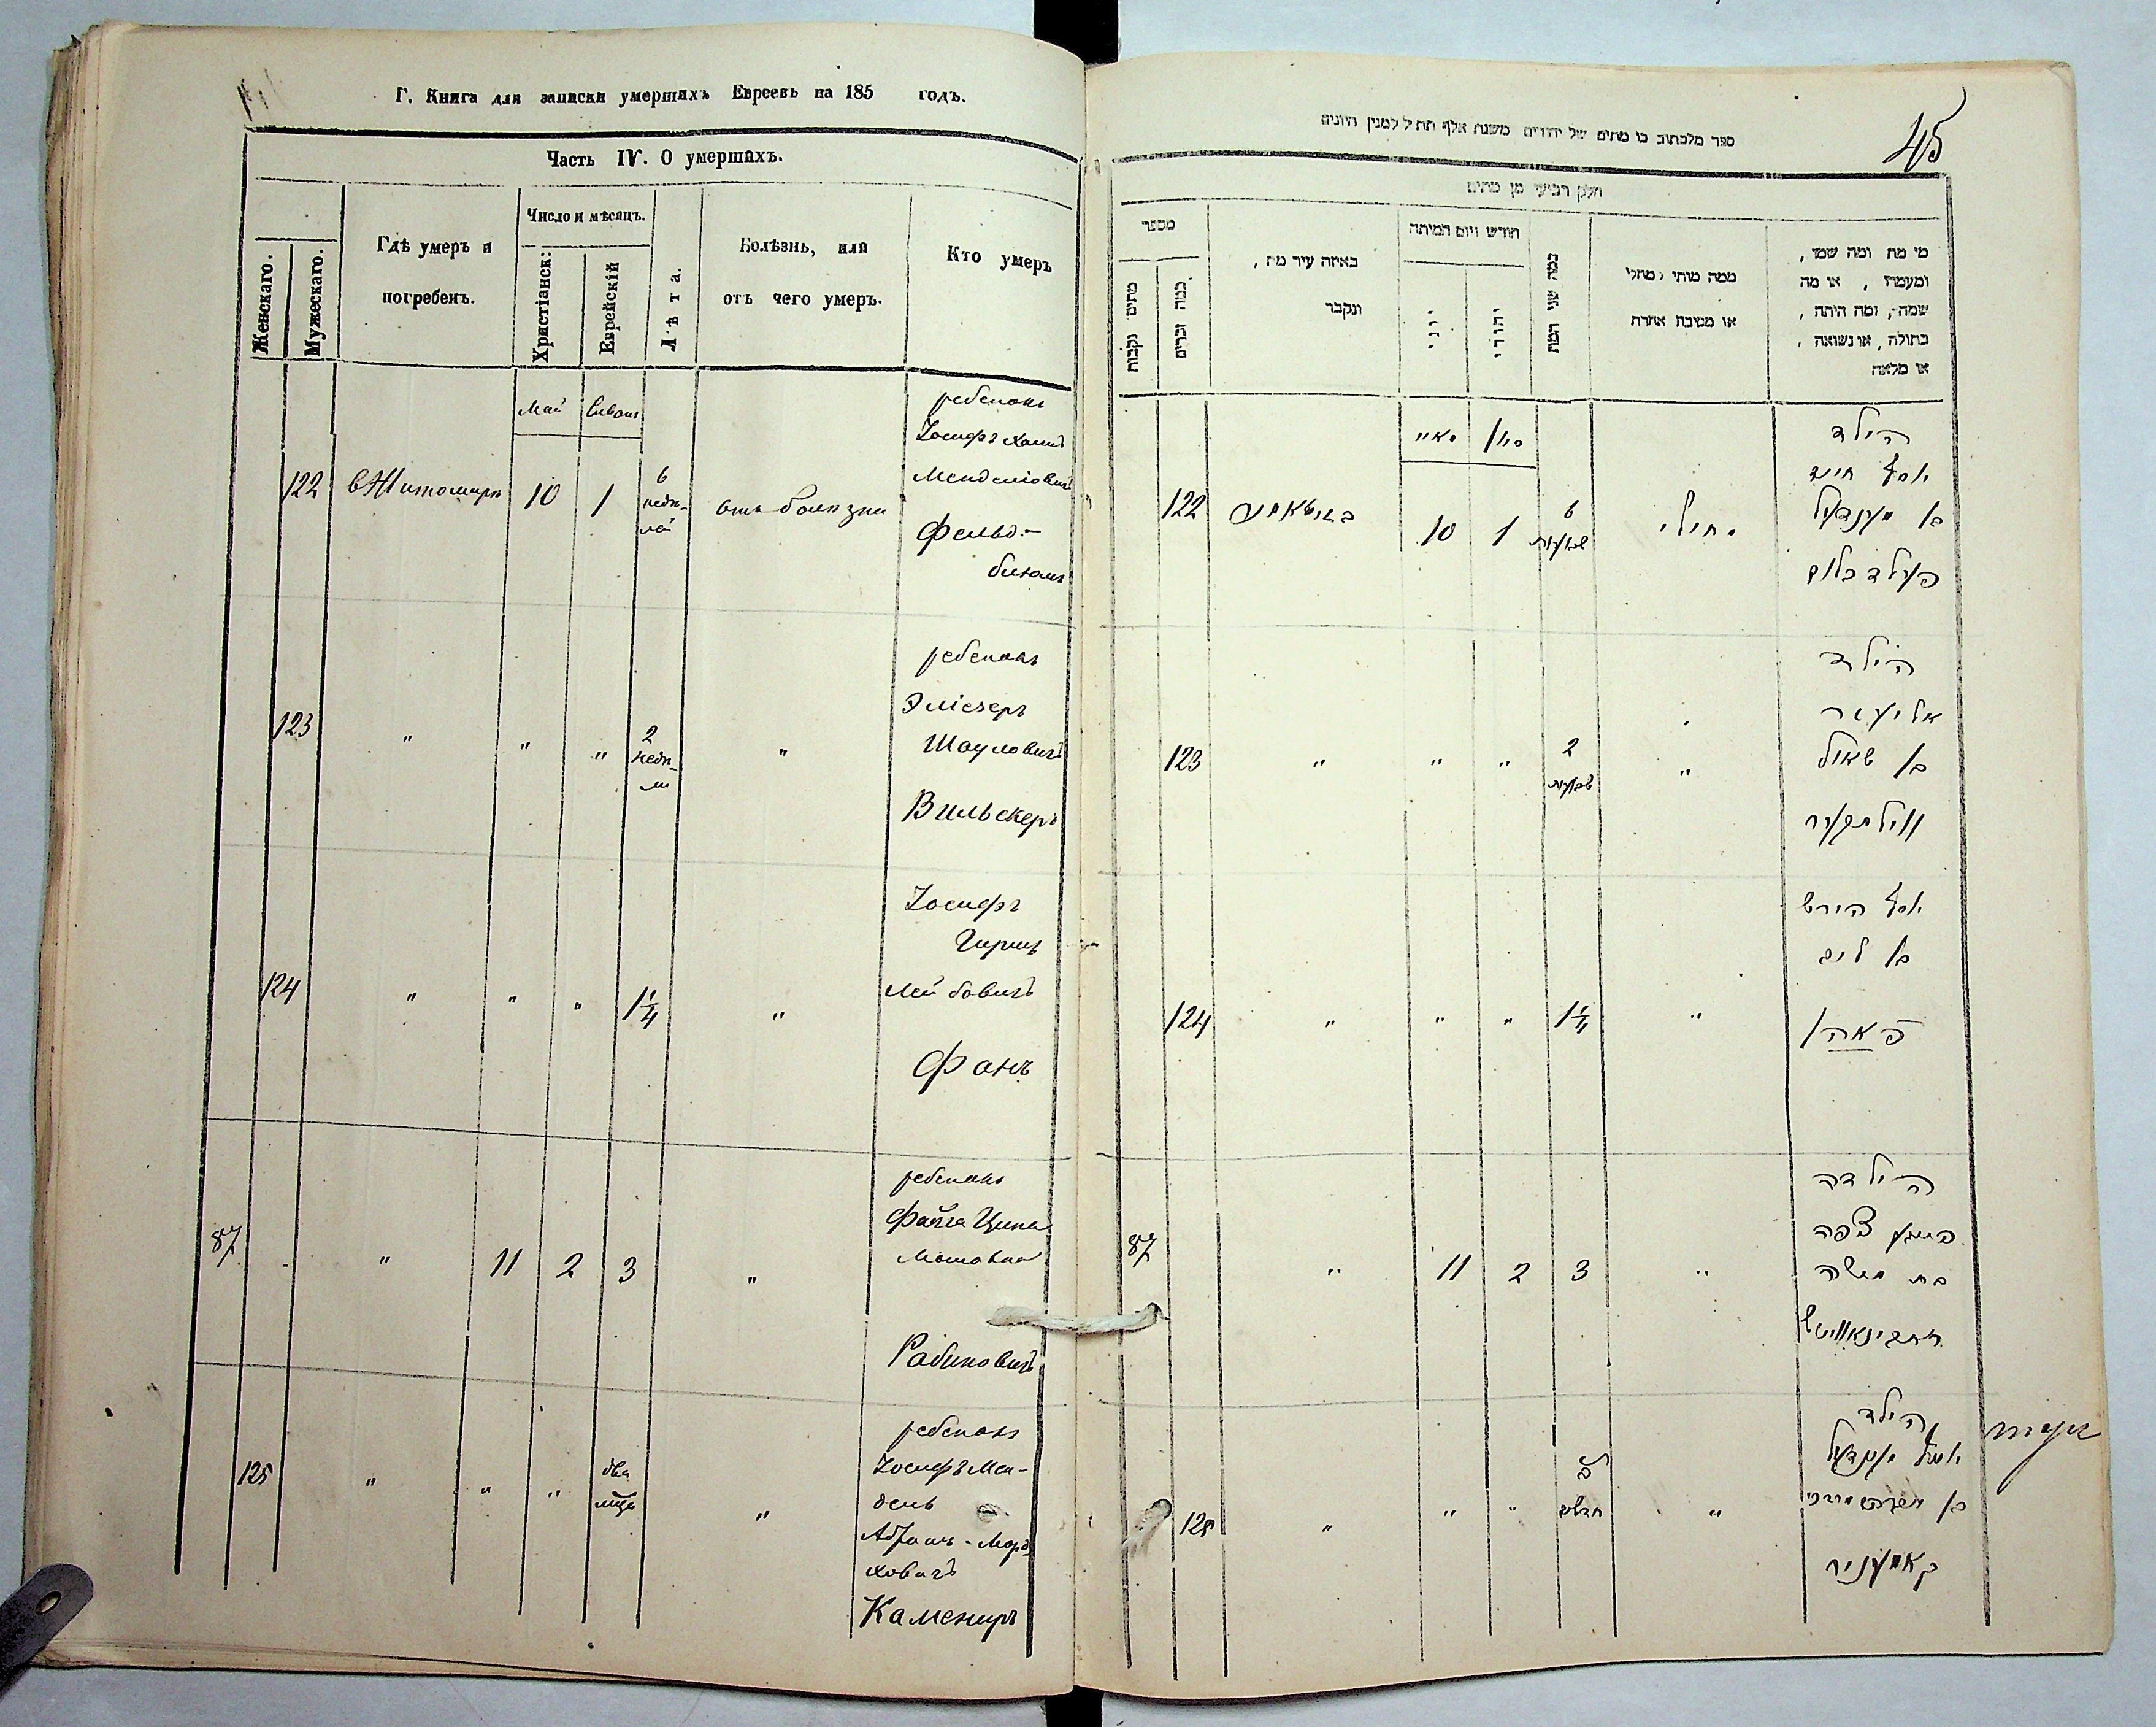 Г. Книга для записки умершихъ Евреевъ на 185 годъ.
Часть IV. О умершихъ.
Женскаго.
Мужескаго.
Гдѣ умеръ и
погребенъ.
Число и мѣсяцъ.
Христіанск:
Еврейскій
Лѣта.
Болѣзнь, или
отъ чего умеръ.
Кто умеръ
Май
Сиванъ
122
в Житомирѣ
10
1
6
недѣ-
лей
отъ болѣзни
ребенокъ
Іосифъ Хаимъ
Менделіовичъ
Фельд-
блюмъ
123
"
"
"
2
недѣ-
ли
"
ребенокъ
Эліезеръ
Шауловичъ
Вильскеръ
124
"
"
"
1 1/4
"
Іосифъ
Гиршъ
Лейбовичъ
Фанъ
87
"
11
2
3
"
ребенокъ
Файга Ципа
Мошовна
Рабиновичъ
125
"
"
"
два
мѣца
"
ребенокъ
Іосифъ Мен-
дель
Абрамъ-Морд-
ховичъ
Камениръ
45
ספר מלכתוב בו מתים של יהודים משנת אלף תת"ל למנין היונים
חלק רביעי מן מתים
מספר
מתים נקבות
כמה זכרים
באיזה עיר מת,
ונקבר
חודש ויום המיתה
יוני
יהודי
כמה שני המת
ממה מותו ומחלי
או מסיבה אחרת
מי מת ומה שמו,
ומעמדו, או מה
שמה, ומה היתה,
בתולה, או נשואה,
או מלאה
מאיי
סיון
122
בזיטאמיר
10
1
6
שבועות
מחולי
הילד
יוסף חיים
בן מענדיל
פעלדבלום
123
"
"
"
2
שבועות
"
הילד
אליעזר
בן שאול
ווילסקער
124
"
"
"
1 1/4
"
יוסף הירש
בן ליב
פאהן
87
"
11
2
3
"
הילדה
פייגא ציפה
בת משה
ראבינאוויטש
125
"
"
"
ב'
חדשים
"
הילד
יוסף מענדיל
בן אברהם מרדכי
קאמעניר